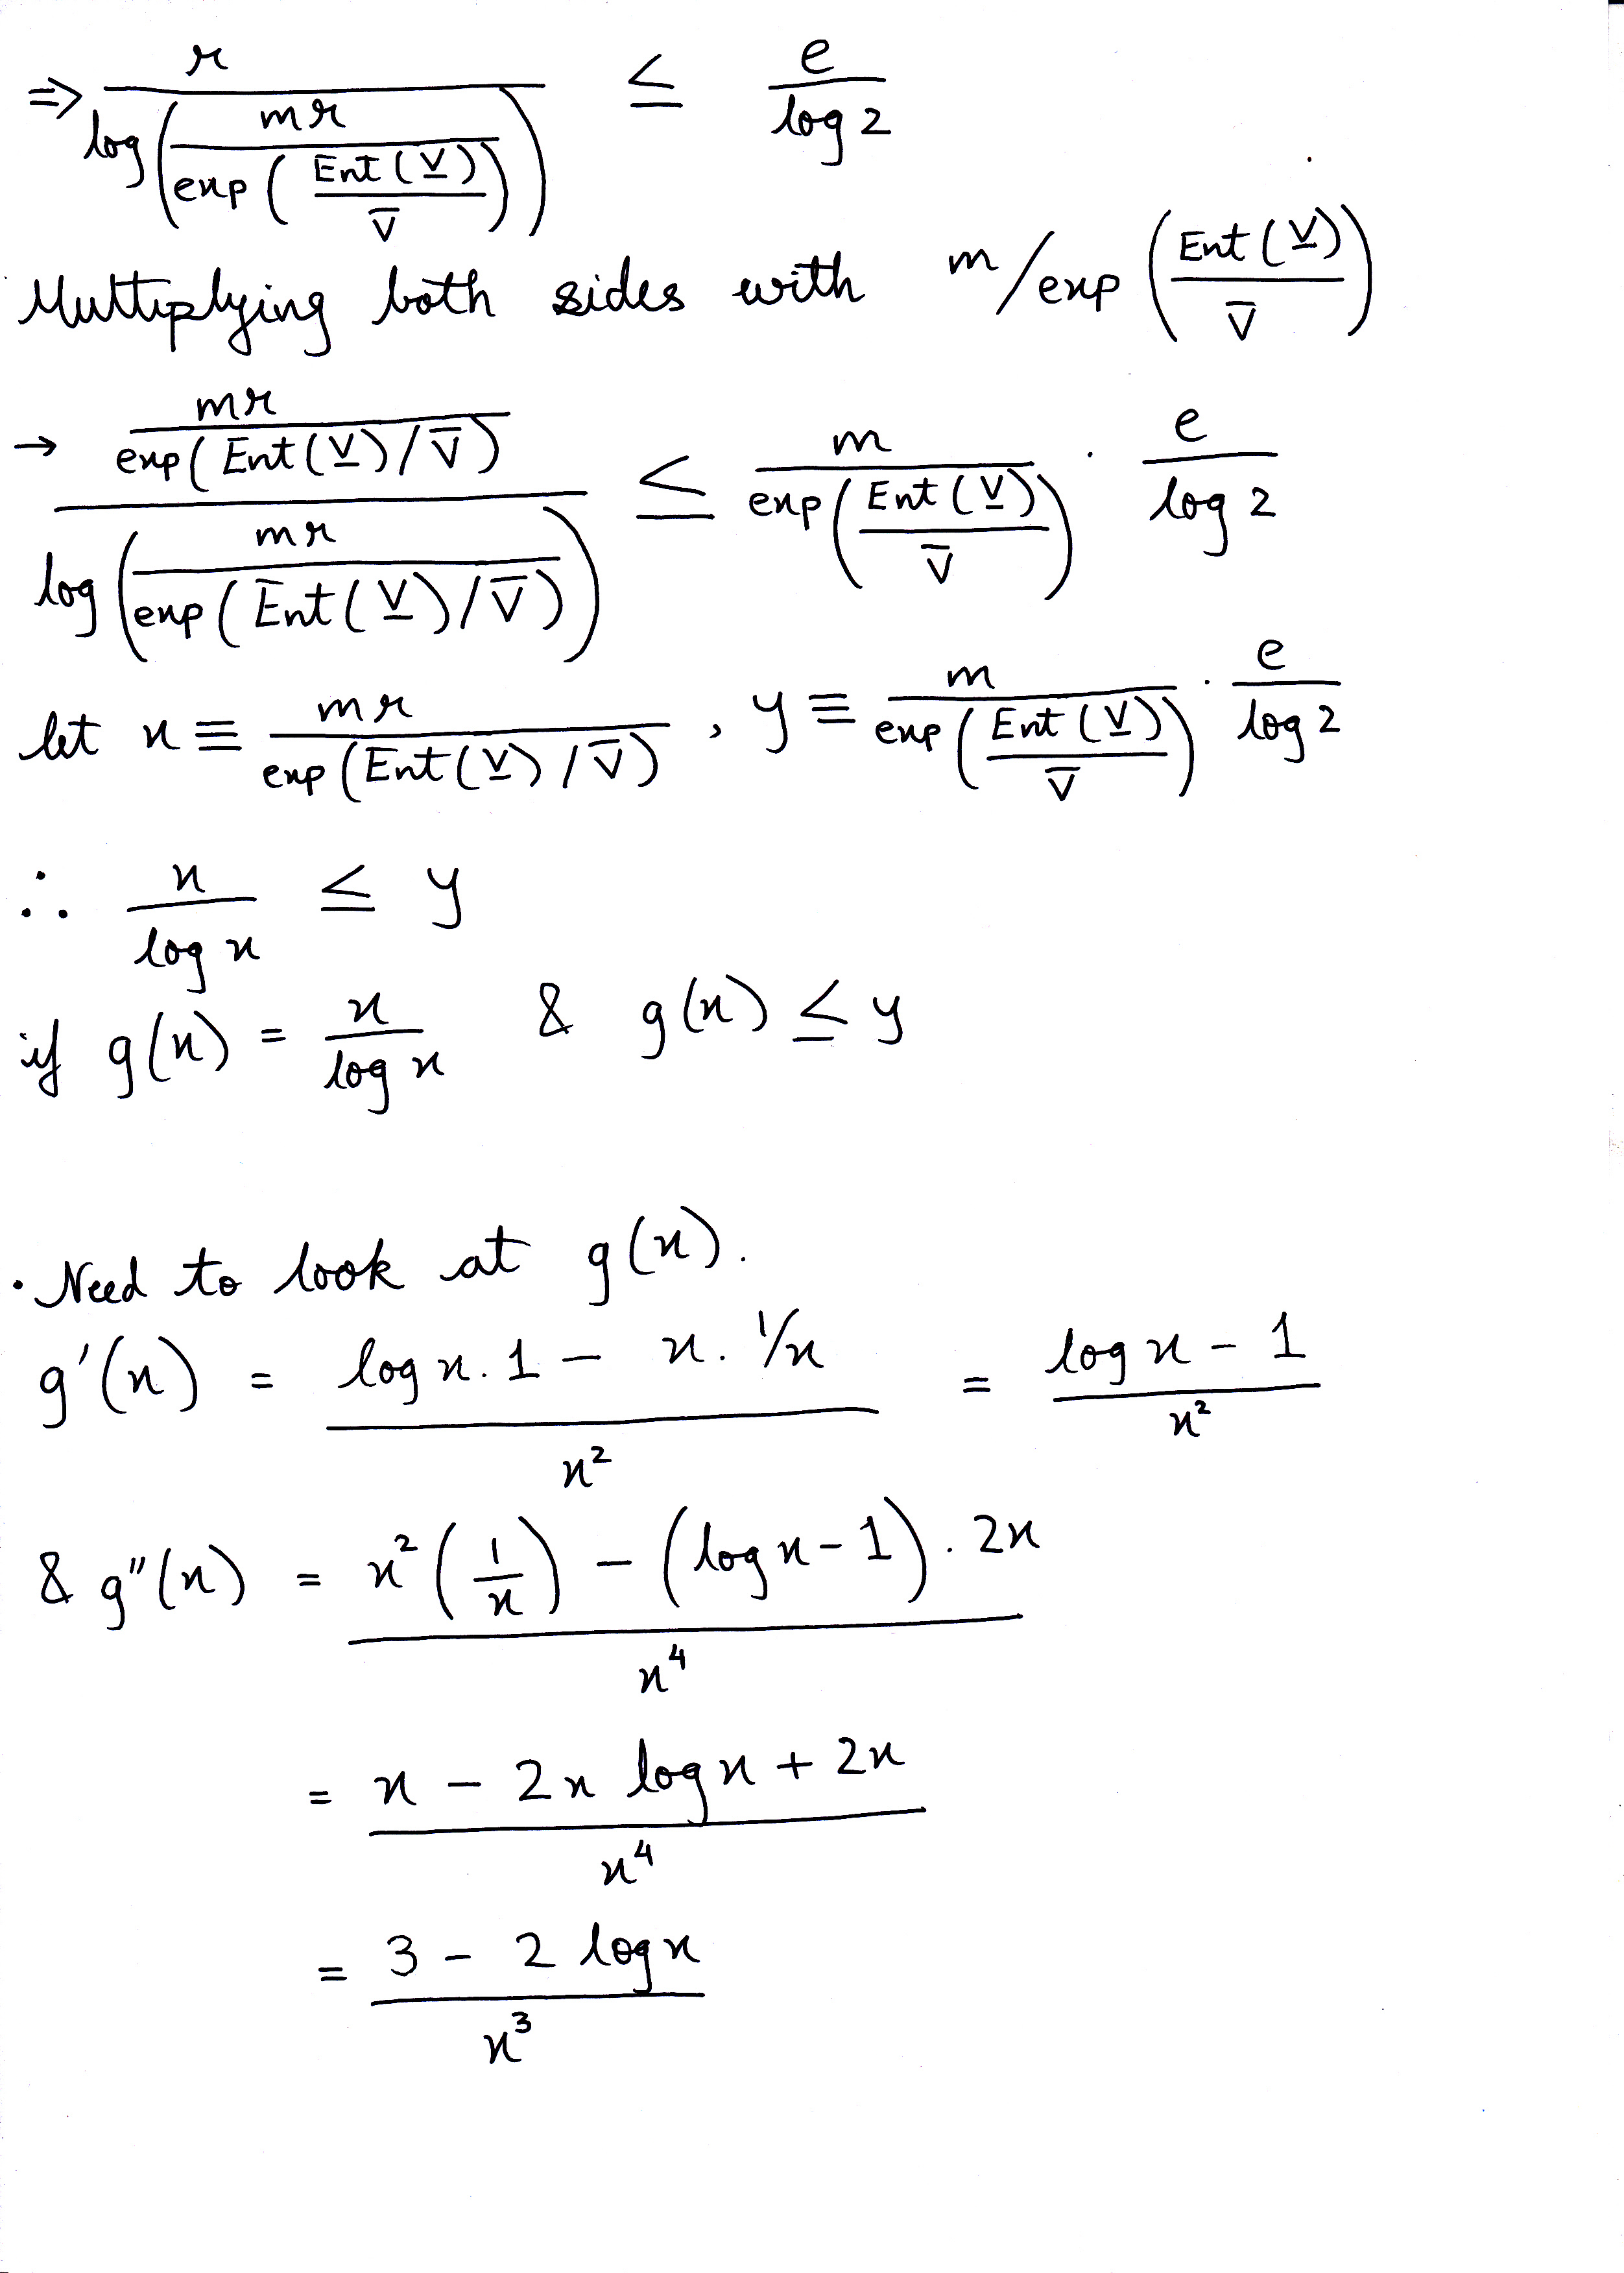 ⇒ r / log( mr / exp( Ent(V̲) / V̅ ) ) ≤ e / log 2
Multiplying both sides with m / exp( Ent(V̲) / V̅ )
→ ( mr / exp( Ent(V̲) / V̅ ) ) / log( mr / exp( Ent(V̲) / V̅ ) ) ≤ m / exp( Ent(V̲) / V̅ ) · e / log 2
let x ≡ mr / exp( Ent(V̲) / V̅ ) , y ≡ m / exp( Ent(V̲) / V̅ ) · e / log 2
∴ x / log x ≤ y
if g(x) = x / log x & g(x) ≤ y
· Need to look at g(x).
g'(x) = ( log x . 1 − x . 1/x ) / x² = ( log x − 1 ) / x²
& g''(x) = ( x² (1/x) − (log x − 1) . 2x ) / x⁴
= ( x − 2x log x + 2x ) / x⁴
= ( 3 − 2 log x ) / x³